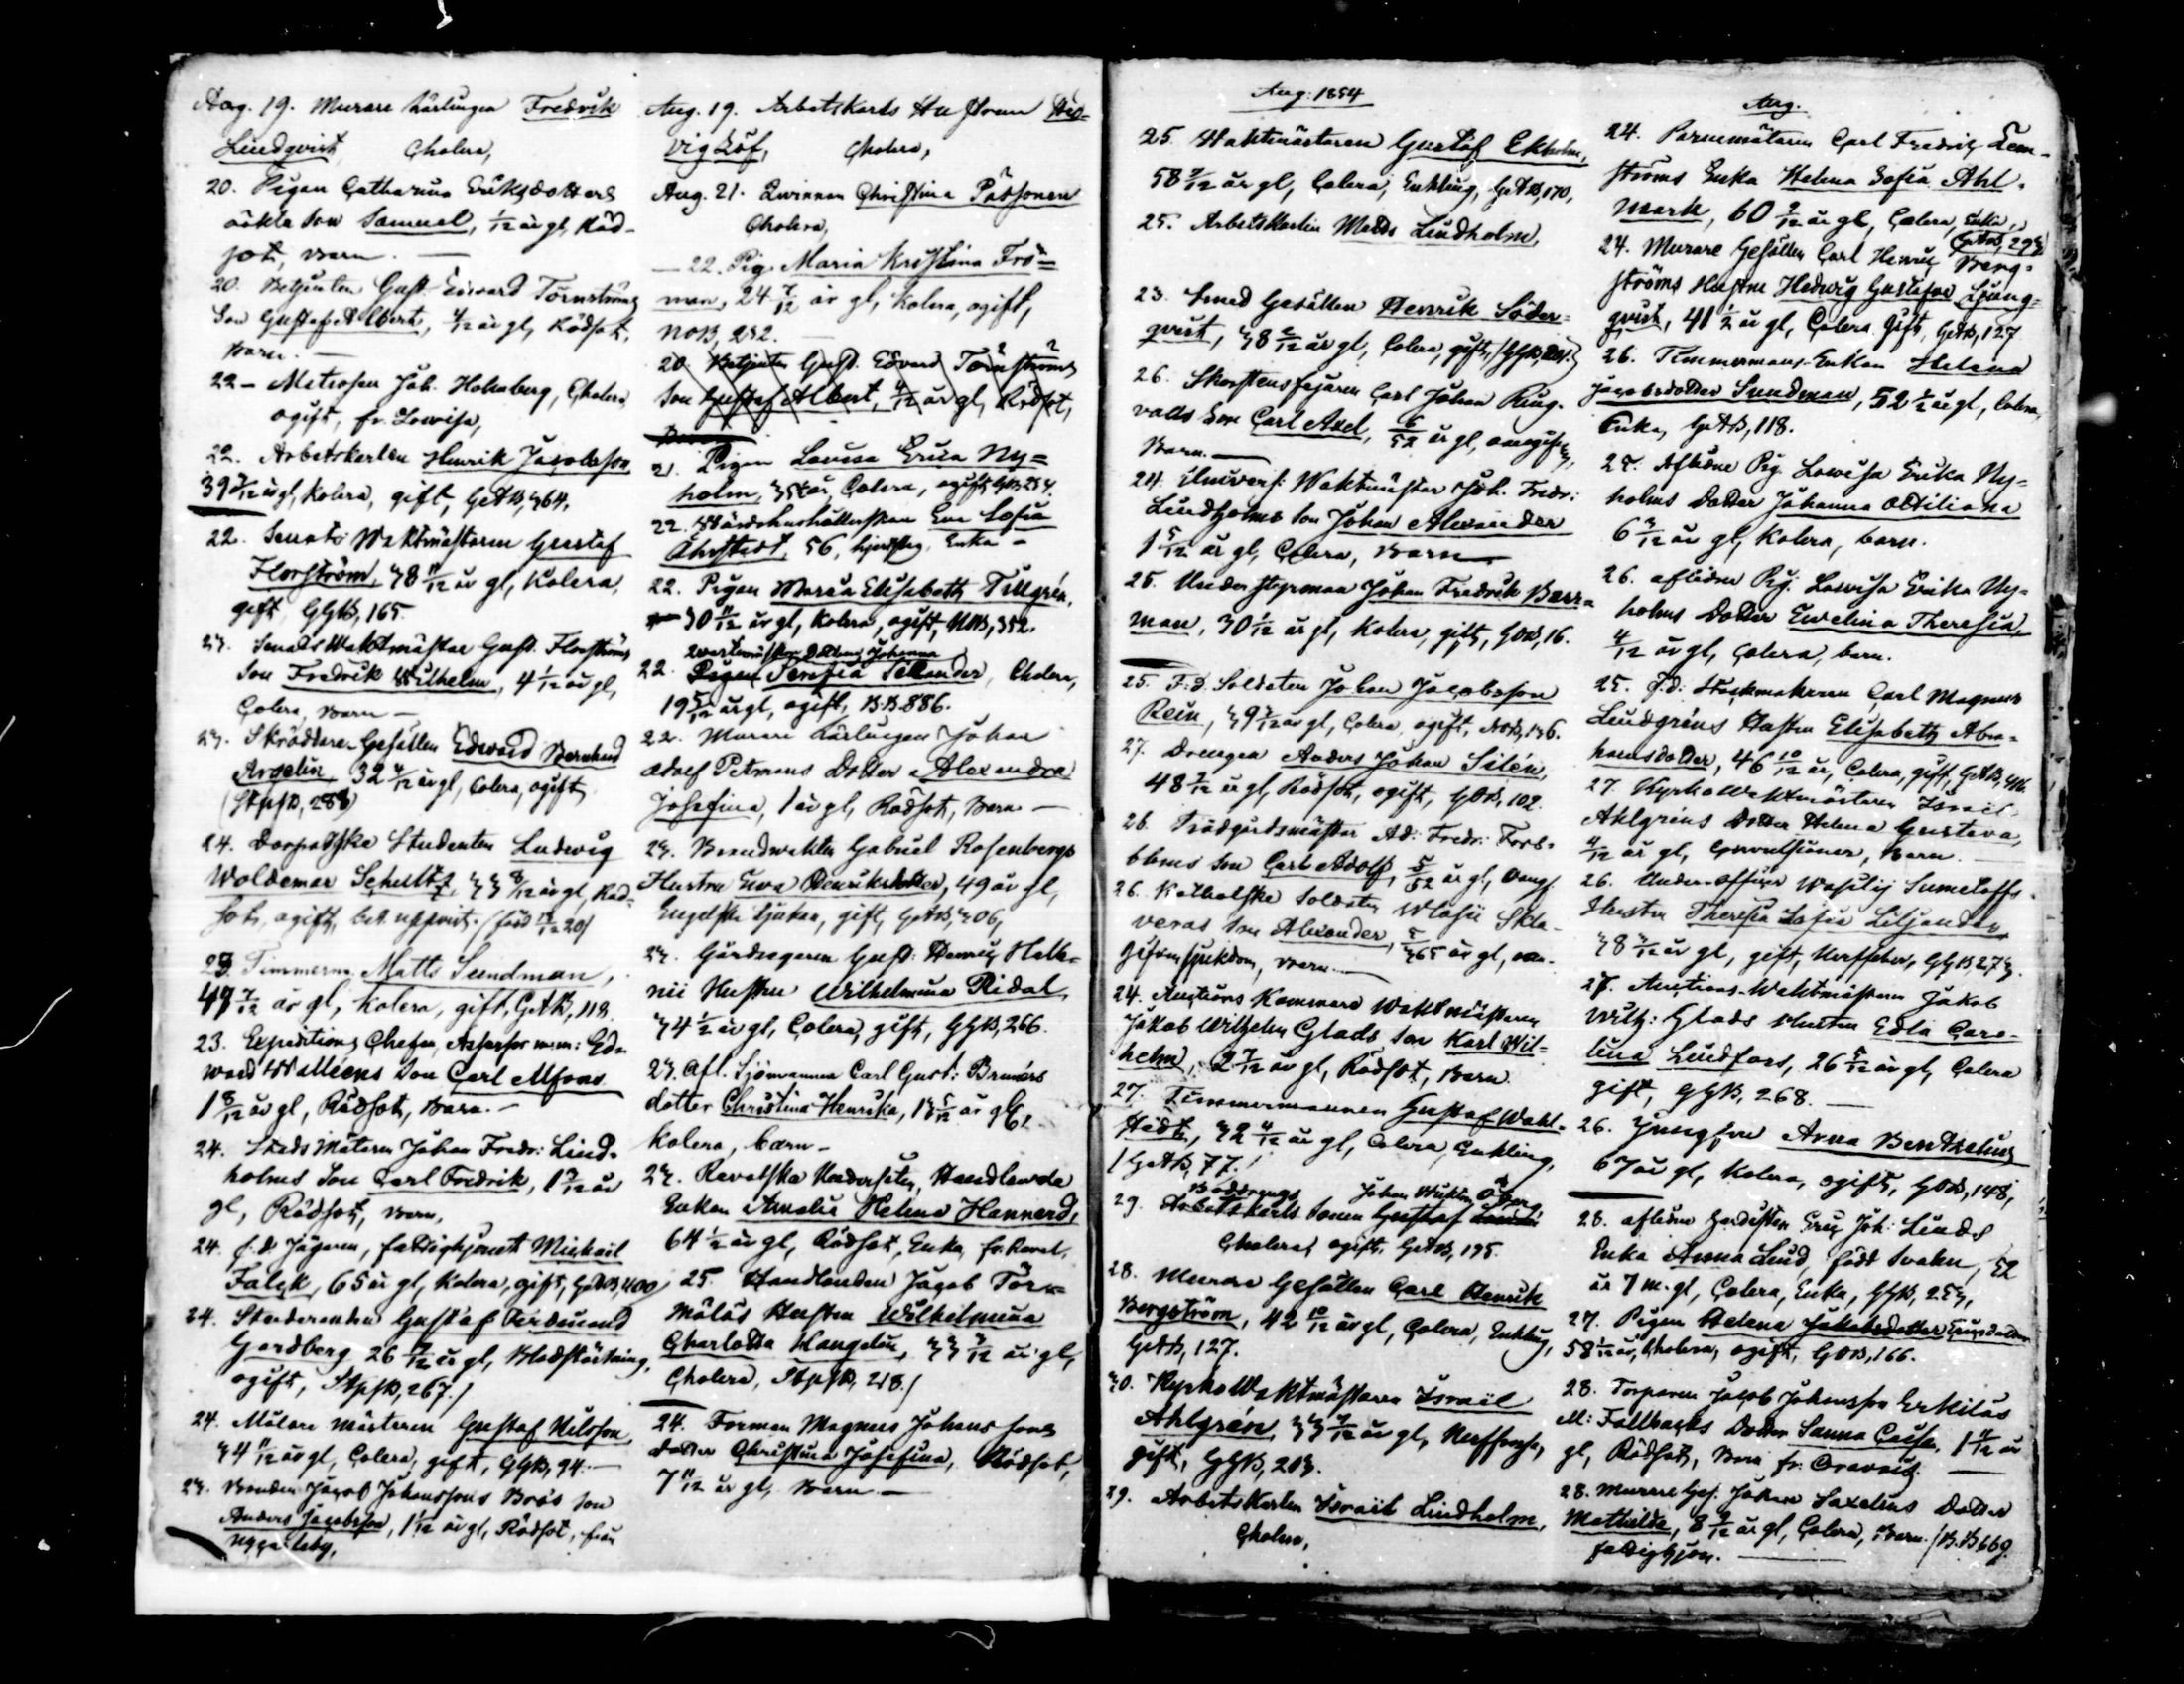 Aug. 19. Murare Lärlingen Fredrik
Lindqvist, Cholera,
20. Pigan Catharina Eriksdotters
oäkta Son Samuel, 1/12 år gl, Röd-
sot, barn. —
20. Betjenten Gust. Edvard Törnströms
Son Gustaf Albert, 4/12 år gl, Rödsot,
Barn. —
22 — Matrosen Joh. Holmberg, Cholera
ogift, fr. Lowisa,
22. Arbetskarlen Henrik Jacobsson
39 år gl, Kolera, gift, GetB, 364.
22. Senats Waktmästaren Gustaf
Florström, 38 11/12 år gl, Kolera,
gift, GGB, 165.
23. Senats Waktmästar Gust. Florströms
Son Fredrik Wilhelm, 4 1/12 år gl,
Colera, barn —
23. Skräddare-Gesällen Edward Bernhard
Argelin 32 4/12 år gl, Colera, ogift
24. Dorpatske Studenten Ludwig
Woldemar Schultz, 33 år gl, Röd-
sot, ogift,
23. Timmerm. Matts Sundman,
49 7/12 år gl, Kolera, gift, GetB, 118.
23. Expeditions Chefen, Assessor m.m: Ed-
ward Walléens Son Carl Alfons
1 8/12 år gl, Rödsot, Barn. —
24. Stads Mätaren Johan Fredr: Lind-
holms Son Carl Fredrik, 1 år
gl, Rödsot, barn,
24. f. d. Jägaren, fattighjonet Michail
Falck, 65 år gl, Kolera, gift, 400
24. Studeranden Gustaf Ferdinand
Gardberg 26 år gl, Blodstörtning,
ogift, 267.)
24. Målare mästaren Gustaf Nilsson,
34 11/12 år gl, Colera, gift, GGB, 94. —
23. Bonden Jacob Johanssons Brös Son
Anders Jacobsson, 1 1/12 år gl, Rödsot, från
Nygårdsby,
Aug. 19. Arbetskarls Hustrun Hed-
vig Löf, Cholera,
Aug. 21. Qwinnan Christina Påssonen
Cholera,
— 22. Pig. Maria Kristina Frö-
man, 24 7/12 år gl, Kolera, ogift,
NoB, 232.
20. Betjenten Gust. Edvard Törnströms
Son Gustaf Albert, 4/12 år gl, Rödsot,
Barn
21. Pigan Lovisa Erica Ny-
holm, år, Colera, ogift,
22. Värdshushållerskan Eva Sofia
Öhrstedt, 56, Enka —
22. Pigan Maria Elisabeth Tillgrén,
30 11/12 år gl, Kolera, ogift, NoB, 352.
Johanna
22. Pigan Serafia Selander, Cholera,
19 5/12 år gl, ogift, B.B. 886.
22. Murare Lärlingen Johan
Adolf Petmans Dotter Alexandra
Josefina, 1 år gl, Rödsot, Barn —
23. Brandwakten Gabriel Rosenbergs
Hustru Ewa Henriksdotter, 49 år gl,
Engelska Sjukan, gift, GetB, 306,
23. Gårdsegaren Gust. Henric Helle-
nii Hustru Wilhelmina Ridal,
34 1/2 år gl, Colera, gift, GGB, 256.
23. Afl. Sjömannen Carl Gust: Bruncrs
dotter Christina Henrika, 13 5/12 år gl,
kolera, barn —
23. Revalska Undersåten, Handlande
Enkan Amalia Helena Hannerd,
64 1/2 år gl, Rödsot, Enka, fr. Reval,
25. Handlanden Jacob Törn-
mälas Hustru Wilhelmina
Charlotta Kangelin, 33 3/12 år gl,
Cholera, 218.)
24. Forman Magnus Johanssons
dotter Christina Josefina, Rödsot,
7 11/12 år gl, Barn. —
Aug: 1854
25. Waktmästaren Gustaf Ekholm,
58 år gl, Colera, Enkling, GetB, 170,
25. Arbetskarlen Matts Lindholm,
23. Smed Gesällen Henrik Söder-
qvist, 38 år gl, Colera, gift,
26. Skorstensfejaren Carl Johan Ring-
valls Son Carl Axel, 6/52 år gl,
Barn. —
24. Univers: Waktmästar Joh. Fredr:
Lindholms Son Johan Alexander
1 5/12 år gl, Colera, Barn —
25. Under Styrman Johan Fredrik Barr-
man, 30 1/12 år gl, Kolera, gift, GOB, 16.
25. F: d. Soldaten Johan Jacobsson
Rein, 39 år gl, Colera, ogift, NoB, 136.
27. Drengen Anders Johan Silén,
48 7/12 år gl, Rödsot, ogift, GOB, 102.
26. Trädgårdsmästar Ad: Fredr: Fors-
bloms Son Carl Adolf, 5/52 år gl,
26. Katholske Soldaten Wlasii Skla-
veras Son Alexander, 5/365 år gl, oan-
gifven sjukdom, barn. —
24. Auctions Kammare Waktmästaren
Jakob Wilhelm Glads Son Karl Wil-
helm, 2 år gl, Rödsot, Barn.
27. Timmermannen Gustaf Wahl-
stedt, 32 4/12 år gl, Colera, Enkling,
(GetB, 77.)
Johan Wilhelm Öberg,
29. Arbetskarls Sonen Gustaf
Cholera, ogift, GetB, 195.
28. Murare Gesällen Carl Henrik
Bergström, 42 10/12 år gl, Colera, Enkling,
GetB, 127.
30. Kyrko Waktmästaren Israël
Ahlgrén, 33 år gl, Nerffeber,
gift, GGB, 203.
29. Arbetskarlen Israël Lindholm,
Cholera,
Aug.
24. Carl Fredric Lem-
ströms Enka Helena Sofia Ahl-
mark, 60 9/12 år gl, Colera, Enka,
24. Murare Gesällen Carl Henric Berg-
ströms Hustru Hedwig Gustafva Ljung-
qvist, 41 1/2 år gl, Colera, gift, GetB, 127
26. Timmermans-Enkan Helena
Jacobsdotter Sundman, 52 år gl, Colera,
Enka, GetB, 118.
25. Aflidne Pig. Lowisa Erika Ny-
holms Dotter Johanna Ottiliana
6 3/12 år gl, Kolera, barn.
26. aflidne Pig. Lowisa Erika Ny-
holms Dotter Ewelina Theresia,
4/12 år gl, Colera, barn.
25. F. d: Stockmakaren Carl Magnus
Lindgréns Hustru Elisabeth Abra-
hamsdotter, 46 10/12 år, Colera, gift, GetB,
27. Kyrko Waktmästaren Israel
Ahlgréns Dotter Helena Gustava,
4/12 år gl, Convulsioner, Barn. —
26. Under-officer Wasilij Sumeloffs
Hustru Theresia Sofia Liljander,
38 år gl, gift, Nerffeber, GGB, 273.
27. Auctions-Waktmästaren Jakob
Wilh: Glads Hustru Edla Caro-
lina Lindfors, 26 5/12 år gl, Colera
gift, GGB, 268. —
26. Jungfru Anna Benthelius
67 år gl, Kolera, ogift, GOB, 148,
28. aflidne Eric Joh: Linds
Enka Anna Lind, född Svahn, 52
år 7 m. gl, Colera, Enka, GGB, 253,
27. Pigan Helena Jakobsdotter
58 1/12 år, Cholera, ogift, GOB, 166.
28. Torparen Jacob Johansson Erkilas
M: Fallbacks Dotter Sanna Caisa, 1 4/12 år
gl, Rödsot, Barn fr. Oravais. —
28. Murare Ges. Johan Saxelins Dotter
Mathilda, 8 9/12 år gl, Colera, Barn. (B.B 669.
fattighjon. —